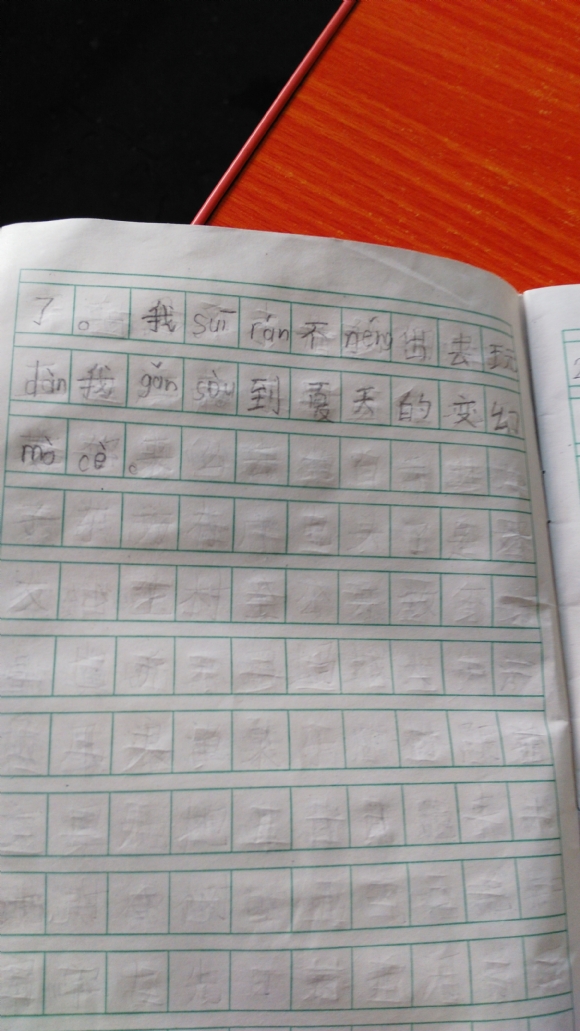 了。我suī rán不néng出去玩
dàn我gǎn sòu到夏天的变幻
mò cè。